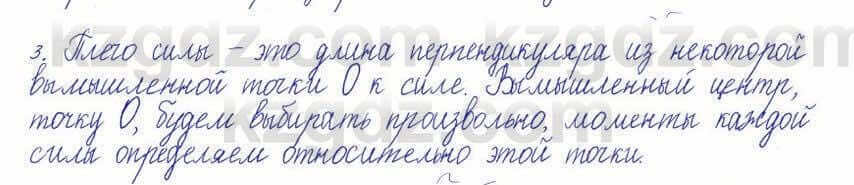 3. Плечо силы – это длина перпендикуляра из некоторой
вымышленной точки О к силе. Вымышленный центр,
точку О, будем выбирать произвольно, моменты каждой
силы определяем относительно этой точки.